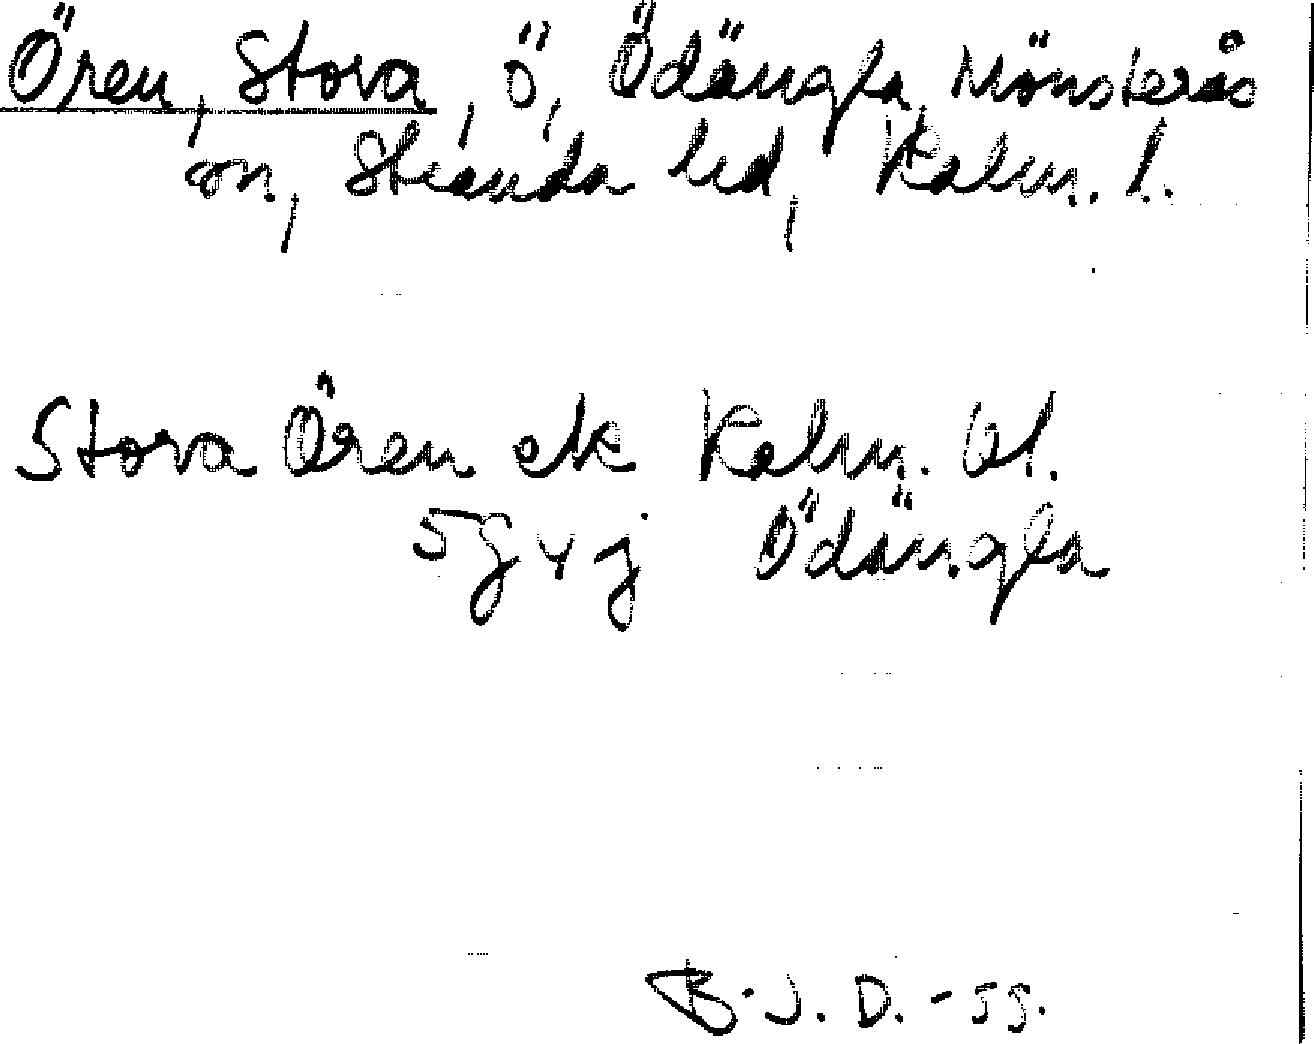 Ören, Stora, ö, Ödängla, Mönsterås
sn, Stranda hd, Kalm. l.
Stora Ören ek Kalm. bl.
5g4j Ödängla
B.J.D. -55.